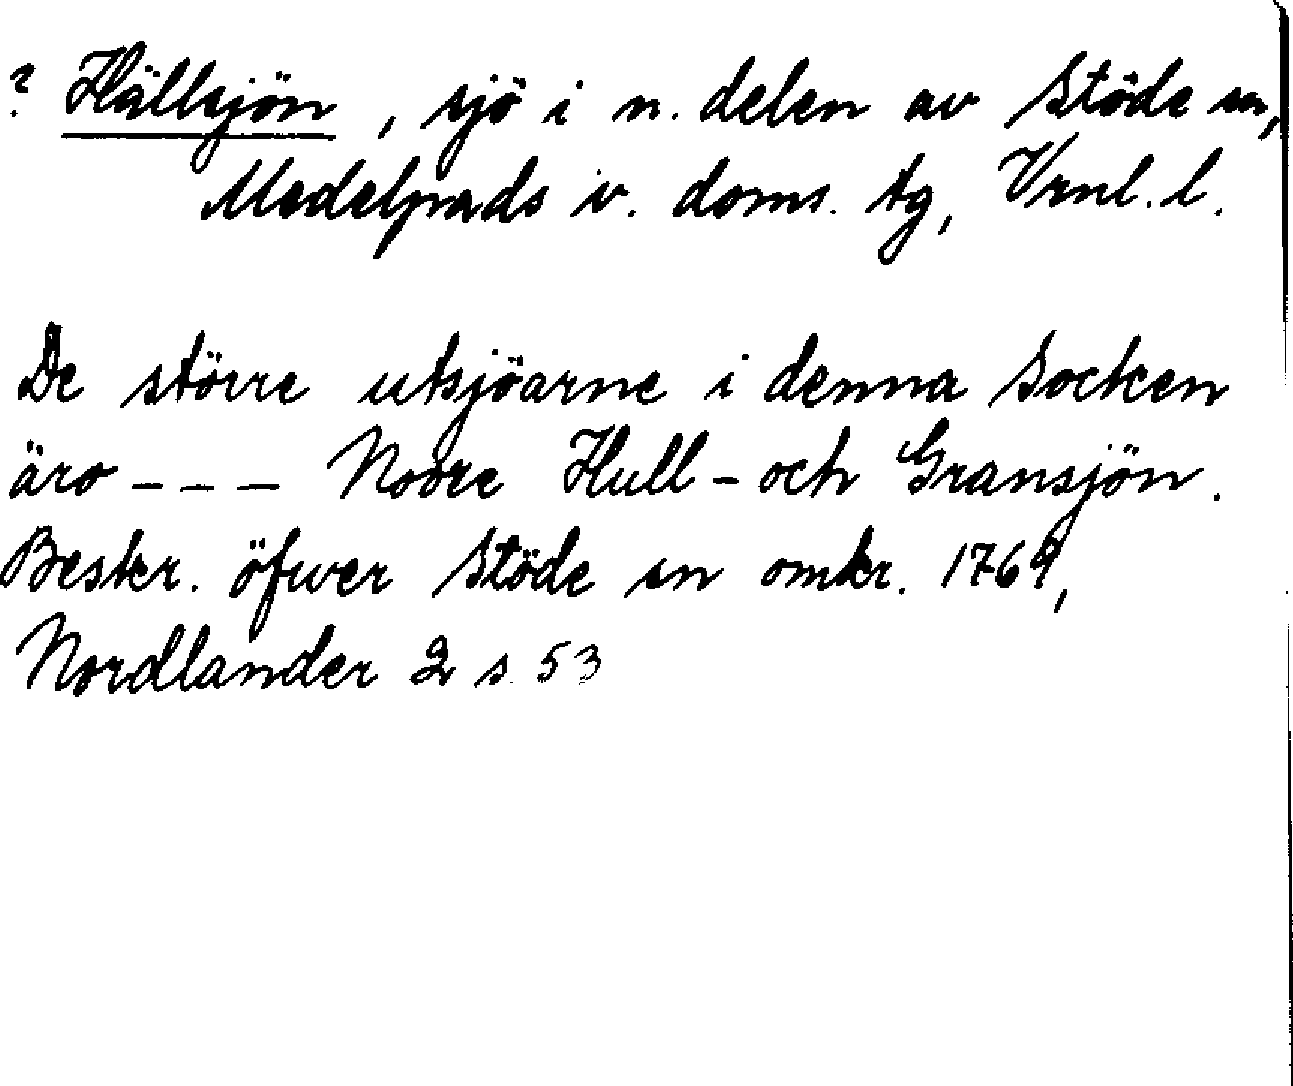 ? Hällsjön, sjö i n. delen av Stöde sn,
Medelpads v. doms. tg, Vrnl. l.
De större utsjöarne i denna Socken
äro - - - Nodre Hull- och Gransjön.
Beskr. öfwer Stöde sn omkr. 1769,
Nordlander 2 s. 53